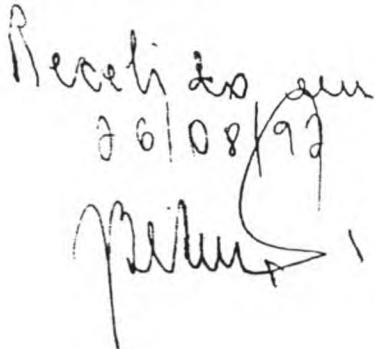 Recebido em
26/08/97